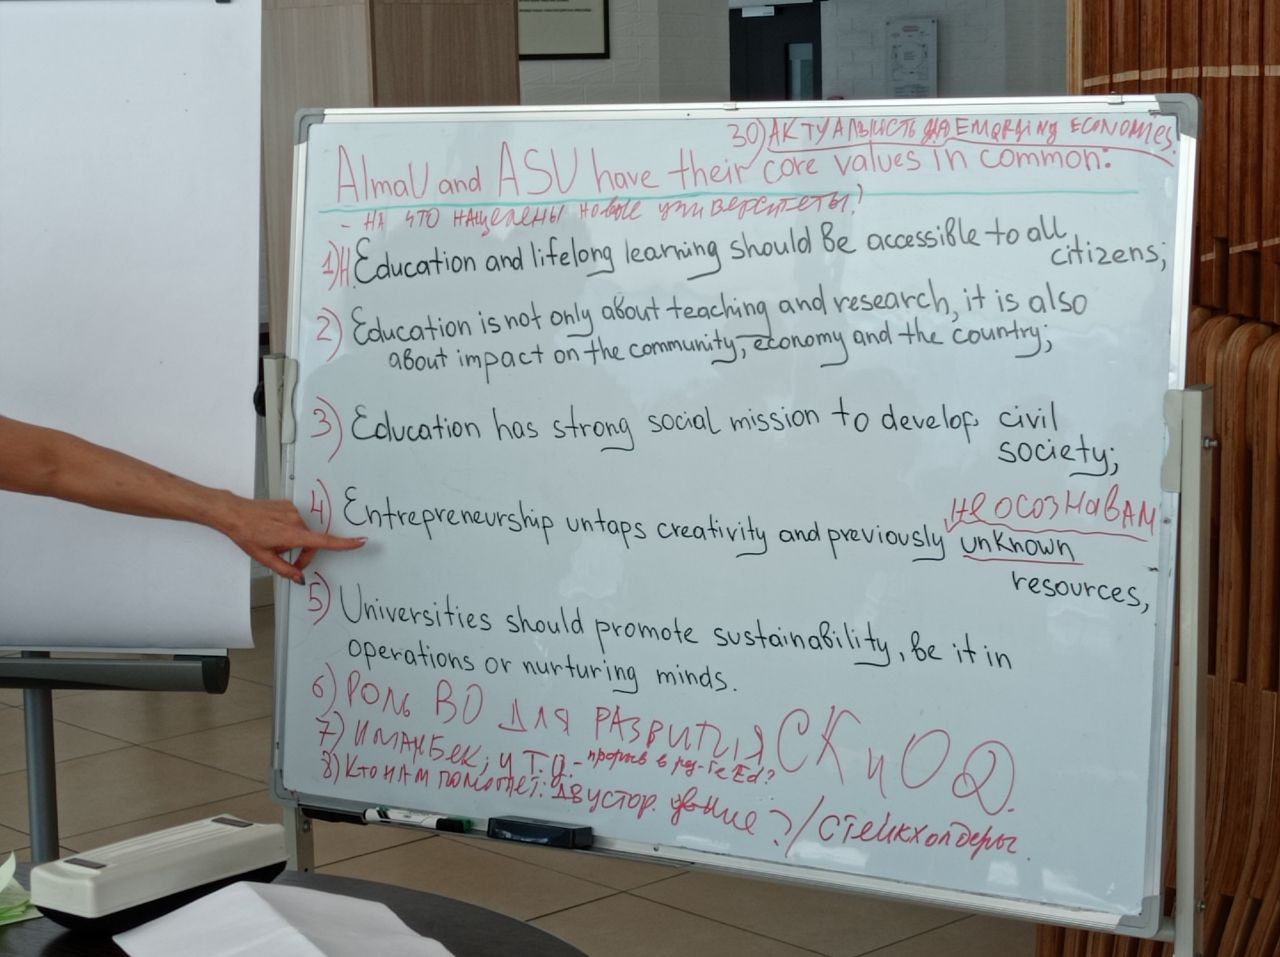 30) АКТУАЛЬНОСТЬ для EMERGING ECONOMIES.
AlmaU and ASU have their core values in common:
- НА ЧТО НАЦЕЛЕНЫ НОВЫЕ университеты?
1) Education and lifelong learning should be accessible to all
citizens;
2) Education is not only about teaching and research, it is also
about impact on the community, economy and the country;
3) Education has strong social mission to develop civil
society;
НЕ ОСОЗНАВАМ
4) Entrepreneurship untaps creativity and previously unknown
resources,
5) Universities should promote sustainability, be it in
operations or nurturing minds.
6) РОЛЬ ВО ДЛЯ РАЗВИТИЯ СК и
7) ИМАНБЕК; и Т.Д. - прорыв в
8) КТО НАМ ПОМОЖЕТ: двустор. ?/ СТЕЙКХОЛДЕРЫ.